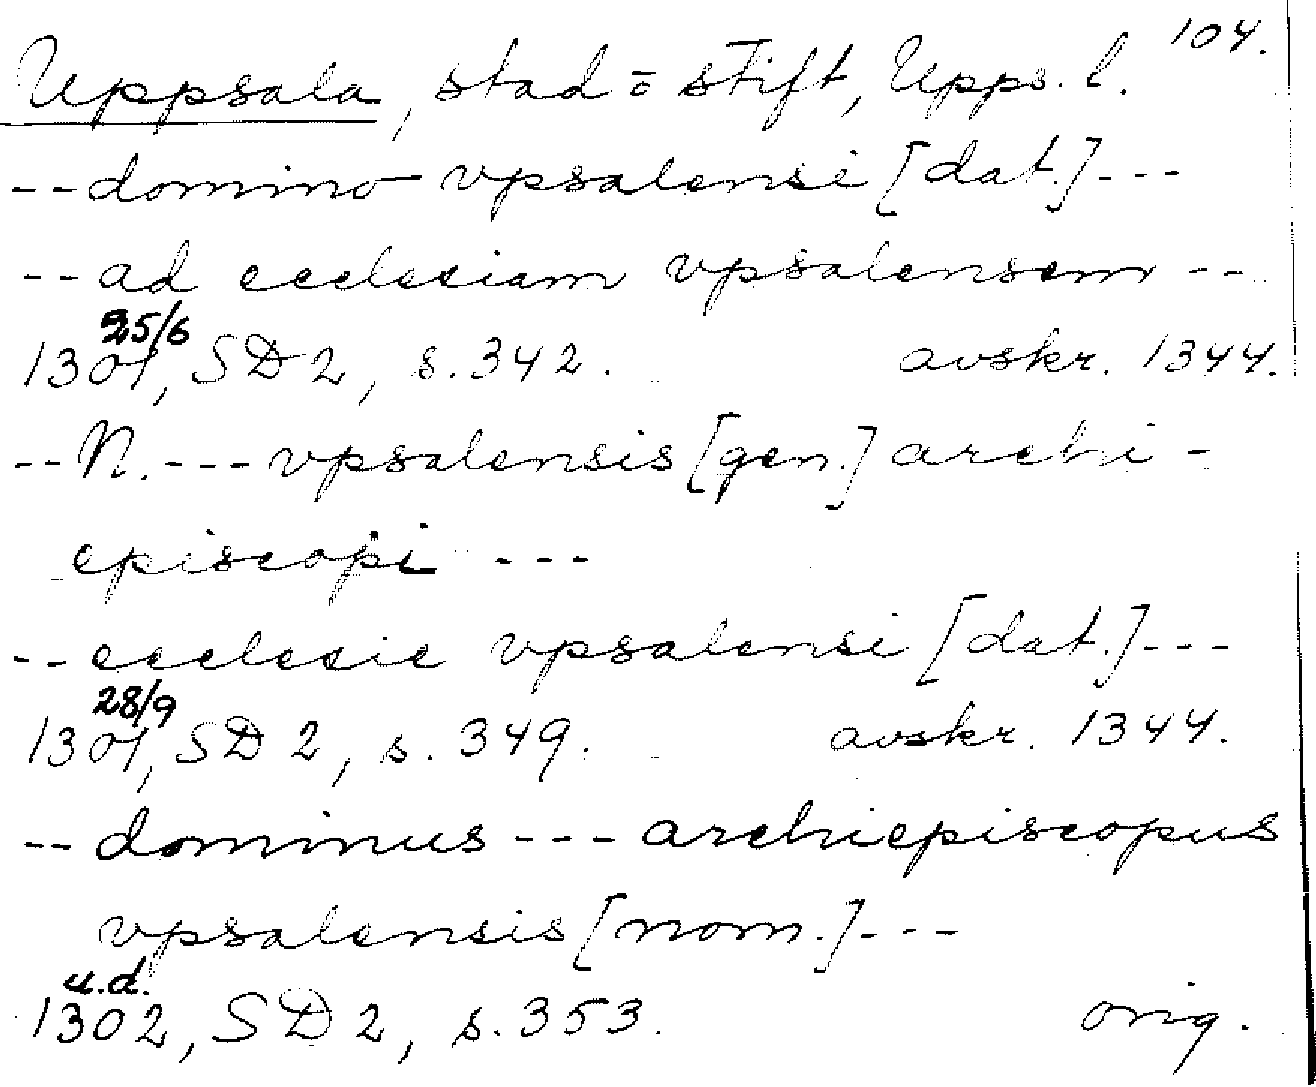 104.
Uppsala, stad = stift, Upps. l.
--domino vpsalensi [dat.]---
--ad ecclesiam vpsalensem --
25/6
1301, SD 2, s. 342. avskr. 1344.
--N.---vpsalensis [gen.] archi-
episcopi ---
--ecclesie vpsalensi [dat.]---
28/9
1301, SD 2, s. 349. avskr. 1344.
--dominus---archiepiscopus
vpsalensis [nom.]---
u.d.
1302, SD 2, s. 353. orig.